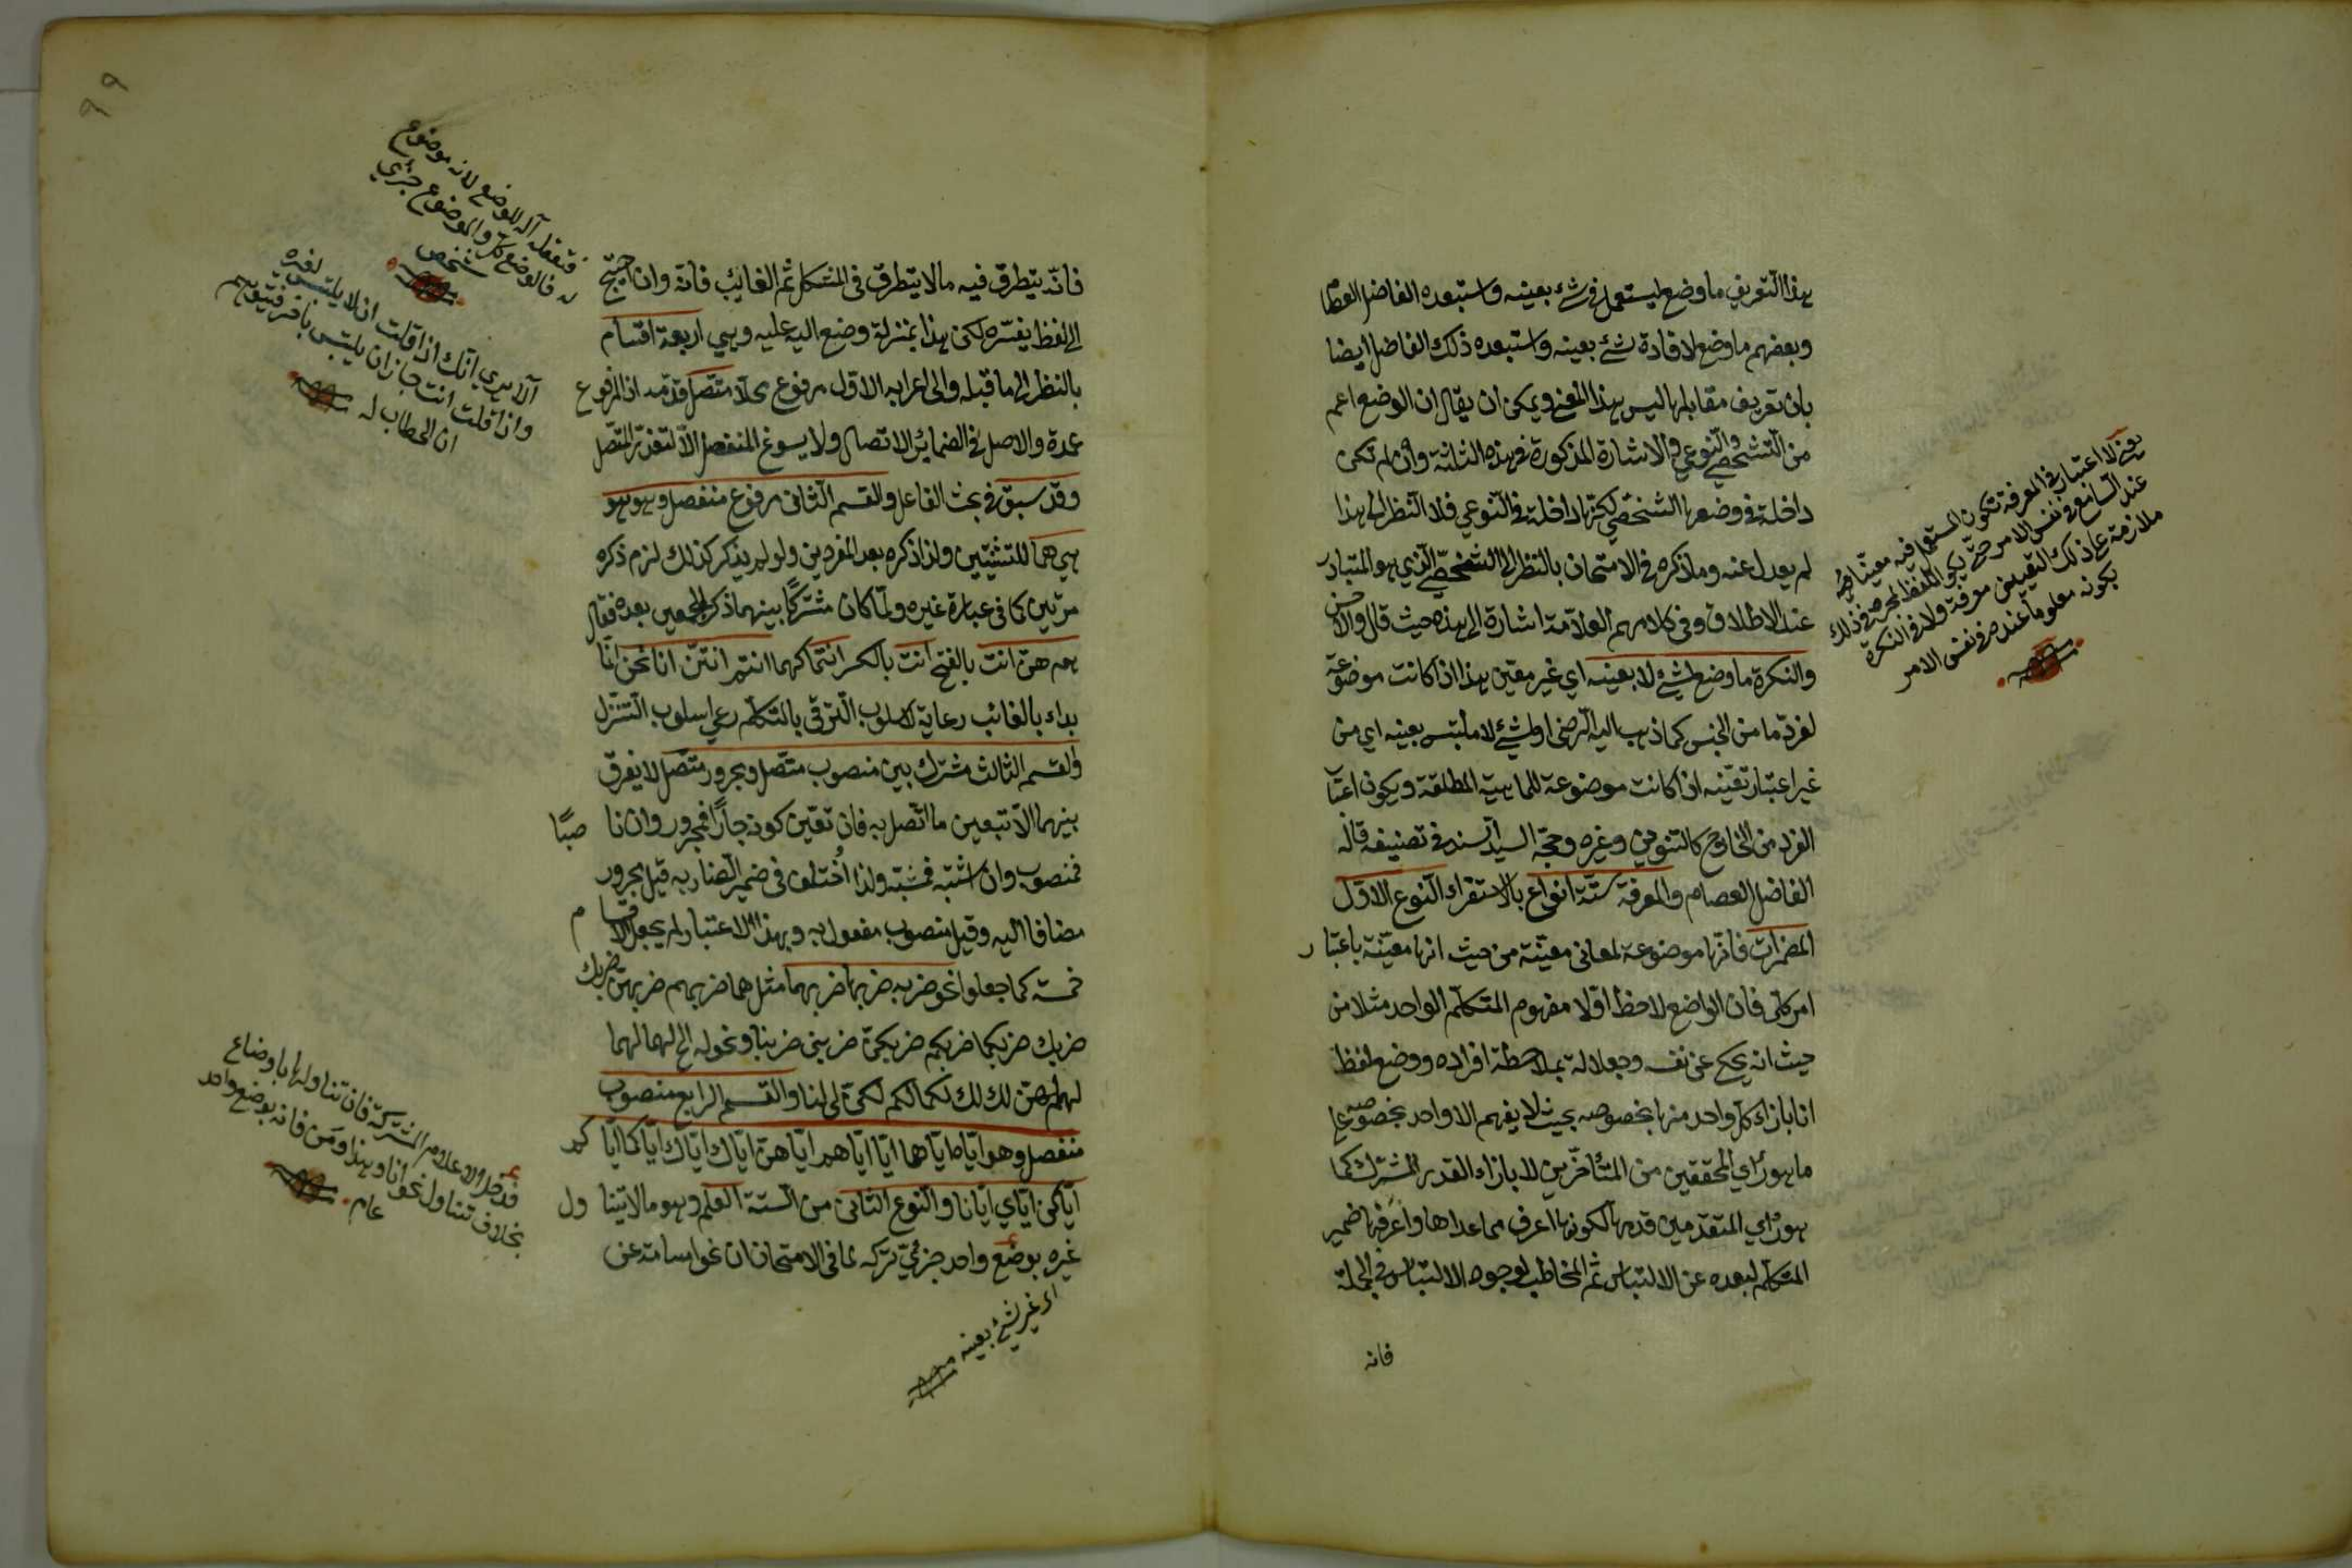 بهذا التعريف ما وضع ليستعمل في شيء بعينه واستبعده الفاضل العصام
وبعضهم ما وضع لافادة شيء بعينه واستبعده ذلك الفاضل ايضا
بان تعريف مقابلها ليس بهذا المعنى ويمكن ان يقال ان الوضع اعم
من الشخصي والنوعي والاشارة المذكورة في هذه الثلثة وان لم تكن
داخلة في وضعها الشخصي لكنها داخلة في النوعي فلا النظر الى هذا
لم يعدل عنه وما ذكره في الامتحان بالنظر الى الشخصي الذي هو المتبادر
عند الاطلاق وفي كلامهم العلامة اشارة الى هذه حيث قال والاحسن
والنكرة ما وضع لشيء لا بعينه اي غير معين هذا اذا كانت موضوعة
لفرد ما من الجنس كما ذهب اليه الرضى او لشيء لا ملتبس بعينه اي من
غير اعتبار تعينه اذا كانت موضوعة للماهية المطلقة ويكون اعتبار
الفرد من الخارج كالتنوين وغيره وحجة السيد السند في تصنيفه قاله
الفاضل العصام والمعرفة ستة انواع بالاستقراء النوع الاول
المضمرات فانها موضوعة لمعانى معينة من حيث انها معينة باعتبار
امر كلى فان الواضع لاحظ اولا مفهوم المتكلم الواحد مثلا من
حيث انه يحكى عن نفسه وجعل الة بملاحظة افراده ووضع لفظ
انا بازاء كل واحد منها بخصوصه بحيث لا يفهم الا واحد بخصوصه على
ما هو رأي المحققين من المتأخرين لا بازاء القدر المشترك كما
هو رأي المتقدمين قدمها لكونها اعرف مما عداها واعرفها ضمير
المتكلم لبعده عن الالتباس ثم المخاطب لوجود الالتباس في الجملة
فانه
يعنى لا اعتبار في المعرفة تكون المستعمل فيه معينا
عند السامع في نفس الامر حتى يكون اللفظ
ملازمة على ذلك التعيين معرفة ولا في النكرة
بكونه معلوما عنده في نفس الامر
٩٩
فانه يتطرق فيه ما لا يتطرق في المتكلم ثم الغايب فانه وان احتيج
الى لفظ يفسره لكن هذا بمنزلة وضع اليد عليه وهي اربعة اقسام
بالنظر الى ما قبله والى اعرابه الاول مرفوع محلا متصل قدمه اذ المرفوع
عمدة والاصل في الضمائر الاتصال ولا يسوغ المنفصل الا لتعذر المتصل
وقد سبق في بحث الفاعل والقسم الثانى مرفوع منفصل وهو هو
هي هما للتثنيتين ولذا ذكره بعد المفردين ولو لم يذكر كذلك لزم ذكره
مرتين كما في عبارة غيره ولما كان مشتركا بينهما ذكر الجمعين بعده فقال
هم هن انت بالفتح انت بالكسر انتما كهما انتم انتن انا نحن انما
بداء بالغائب رعاية لاسلوب الترقي بالتكلم رعى اسلوب التنزل
والقسم الثالث مشترك بين منصوب متصل ومجرور متصل لا يفرق
بينهما الا بتعيين ما اتصل به فان تعين كونه جارا فمجرور وان ناصبا
فمنصوب وان اشتبه فمشتبه ولذا اختلف في ضمير الضاربه قيل مجرور
مضافا اليه وقيل منصوب مفعول به وبهذا الاعتبار لم يجعل الاقسام
خمسة كما جعلوا نحو ضربه ضربها ضربهما مثل هما ضربهم ضربهن ضربك
ضربك ضربكما ضربكم ضربكن ضربنى ضربنا ونحو له الخ لها لهما
لهم لهن لك لك لكما لكم لكن لى لنا والقسم الرابع منصوب
منفصل وهو اياه اياها اياهما اياهم اياهن اياك اياك اياكما اياكم
اياكن اياي ايانا والنوع الثانى من الستة العلم وهو ما لا يتناول
غيره بوضع واحد جزئي تركه لما في الامتحان ان نحو اسامة عن
فتعقله آلة للوضع لا انه موضوع
له فالوضع كلي والموضوع جزئي
شخص
ألا يرى انك اذا قلت انا لا يلتبس لغيره
واذا قلت انت جاز ان يلتبس باخر فيتوهم
ان الخطاب له
فدخل الاعلام المشتركة فان تناولها باوضاع
بخلاف تناول نحو انا وهذا ومن فانه بوضع واحد
عام
اى غير شيء بعينه